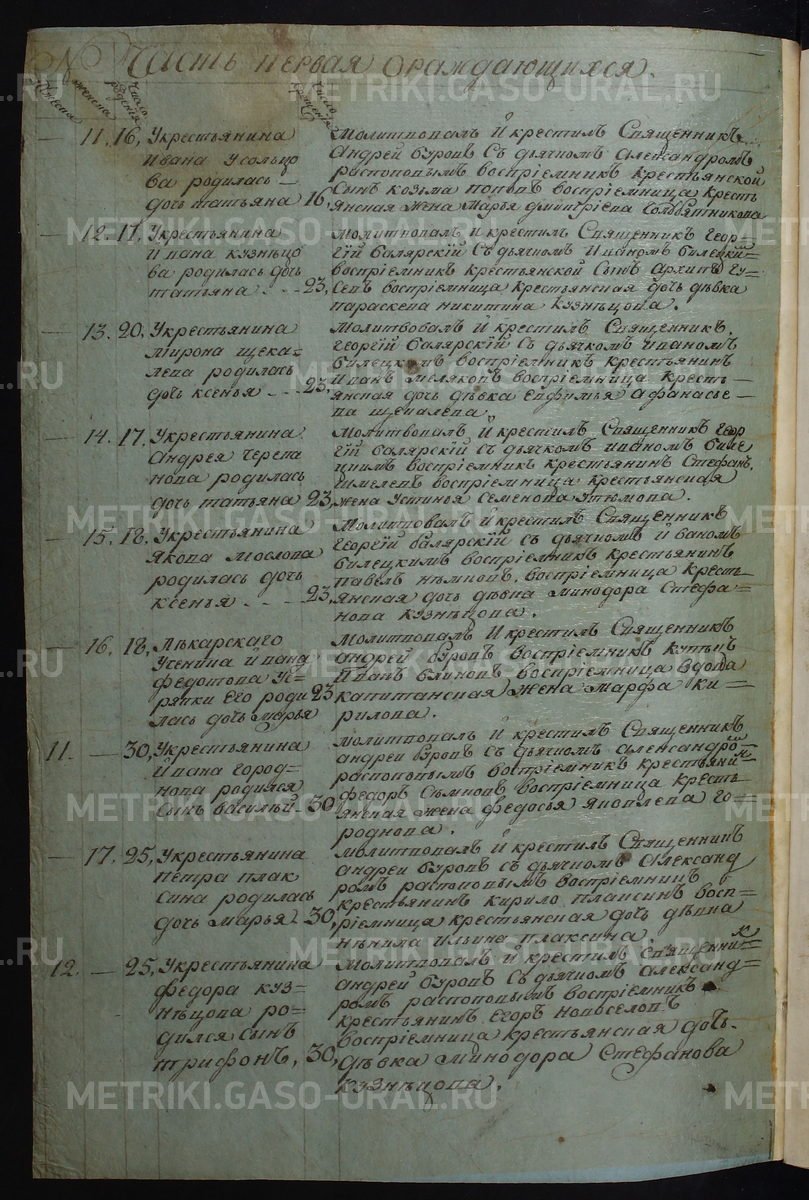 № Часть первая ораждающихся.
мужеска
женска
число рождения
число крещения
11. 16, Укрестьянина
Ивана Усольцо
ва родилась
дочь татьяна 16,
Молитвовалъ й крестилъ Священникъ
Андрей буровъ Съ дьячкомъ Александромъ
распоповымъ воспріемникъ крестьянской
Сынъ козьма поповъ воспріемница кресть
янская жена Марья дмитріева Солодянникова
12. 17, Укрестьянина
Ивана кузнѣцо
ва родилась дочь
татьяна. 23,
Молитвовалъ й крестилъ Священникъ Геор
гій балярскій Съ дьячкомъ Иваномъ билецкимъ
воспріемникъ крестьянской Сынъ Архипъ Гу=
Севъ воспріемница крестьянская дочь дѣвка
параскева никитина кузнѣцова.
13. 20, Укрестьянина
мирона щека=
лева родилась
дочь ксенья 23,
Молитвовалъ й крестилъ Священникъ,
георгій балярскій съ дьячкомъ иваномъ
билецкимъ воспріемникъ крестьянинъ
Иванъ меляковъ воспріемница кресть
янская дочь дѣвка Евфимья афанасье
ва щекалева.
14. 17, Укрестьянина
Андрея черепа
нова родилась
дочь татьяна 23,
Молитвовалъ й крестилъ Священникъ геор
гій балярскій съ дьячкомъ иваномъ биле
цкимъ воспріемникъ крестьянинъ Стефанъ
шмелевъ воспріемница крестьянская
жена Устинья Семенова Утюмова.
15. 18, Укрестьянина
якова мослова
родилась дочь
ксенья 23,
Молитвовалъ й крестилъ Священникъ
георгій балярскій съ дьячкомъ иваномъ
билецкимъ воспріемникъ крестьянинъ
павелъ нѣмковъ, воспріемница кресть
янская дочь дѣвка минодора Стефа=
нова кузнѣцова.
16. 18, Лѣкарскаго
Ученика Ивана
федотова Уе=
рявки Его роди
лась дочь марья 23
Молитвовалъ й крестилъ Священникъ
андрей буровъ воспріемникъ купецъ
Иванъ блиновъ воспріемница вдова
капитанская жена марфа ки=
рилова.
11. 30, Укрестьянина
Ивана город=
нова родился
Сынъ василій 30
Молитвовалъ й крестилъ Священникъ
андрей буровъ съ дьячкомъ александро
распоповымъ воспріемникъ крестьянин
федоръ Сѣмковъ воспріемница кресть
янская жена федосья яковлева го=
роднова.
17. 25, Укрестьянина
петра плак
сина родилась
дочь марья 30,
Молитвовалъ й крестилъ Священникъ
андрей буровъ съ дьячкомъ Александ
ромъ распоповымъ воспріемникъ
крестьянинъ кирило плаксинъ восп=
ріемница крестьянская дочь дѣвка
ненила ильина плаксина.
12. 25, Укрестьянина
федора куз=
нѣцова ро=
дился Сынъ
трифонъ, 30,
Молитвовалъ й крестилъ Священни=
андрей буровъ съ дьячкомъ александ
ромъ распоповымъ воспріемникъ
крестьянинъ Егоръ новоселовъ
воспріемница крестьянская дочь
дѣвка минодора Стефанова
кузнѣцова.
METRIKI.GASO-URAL.RU